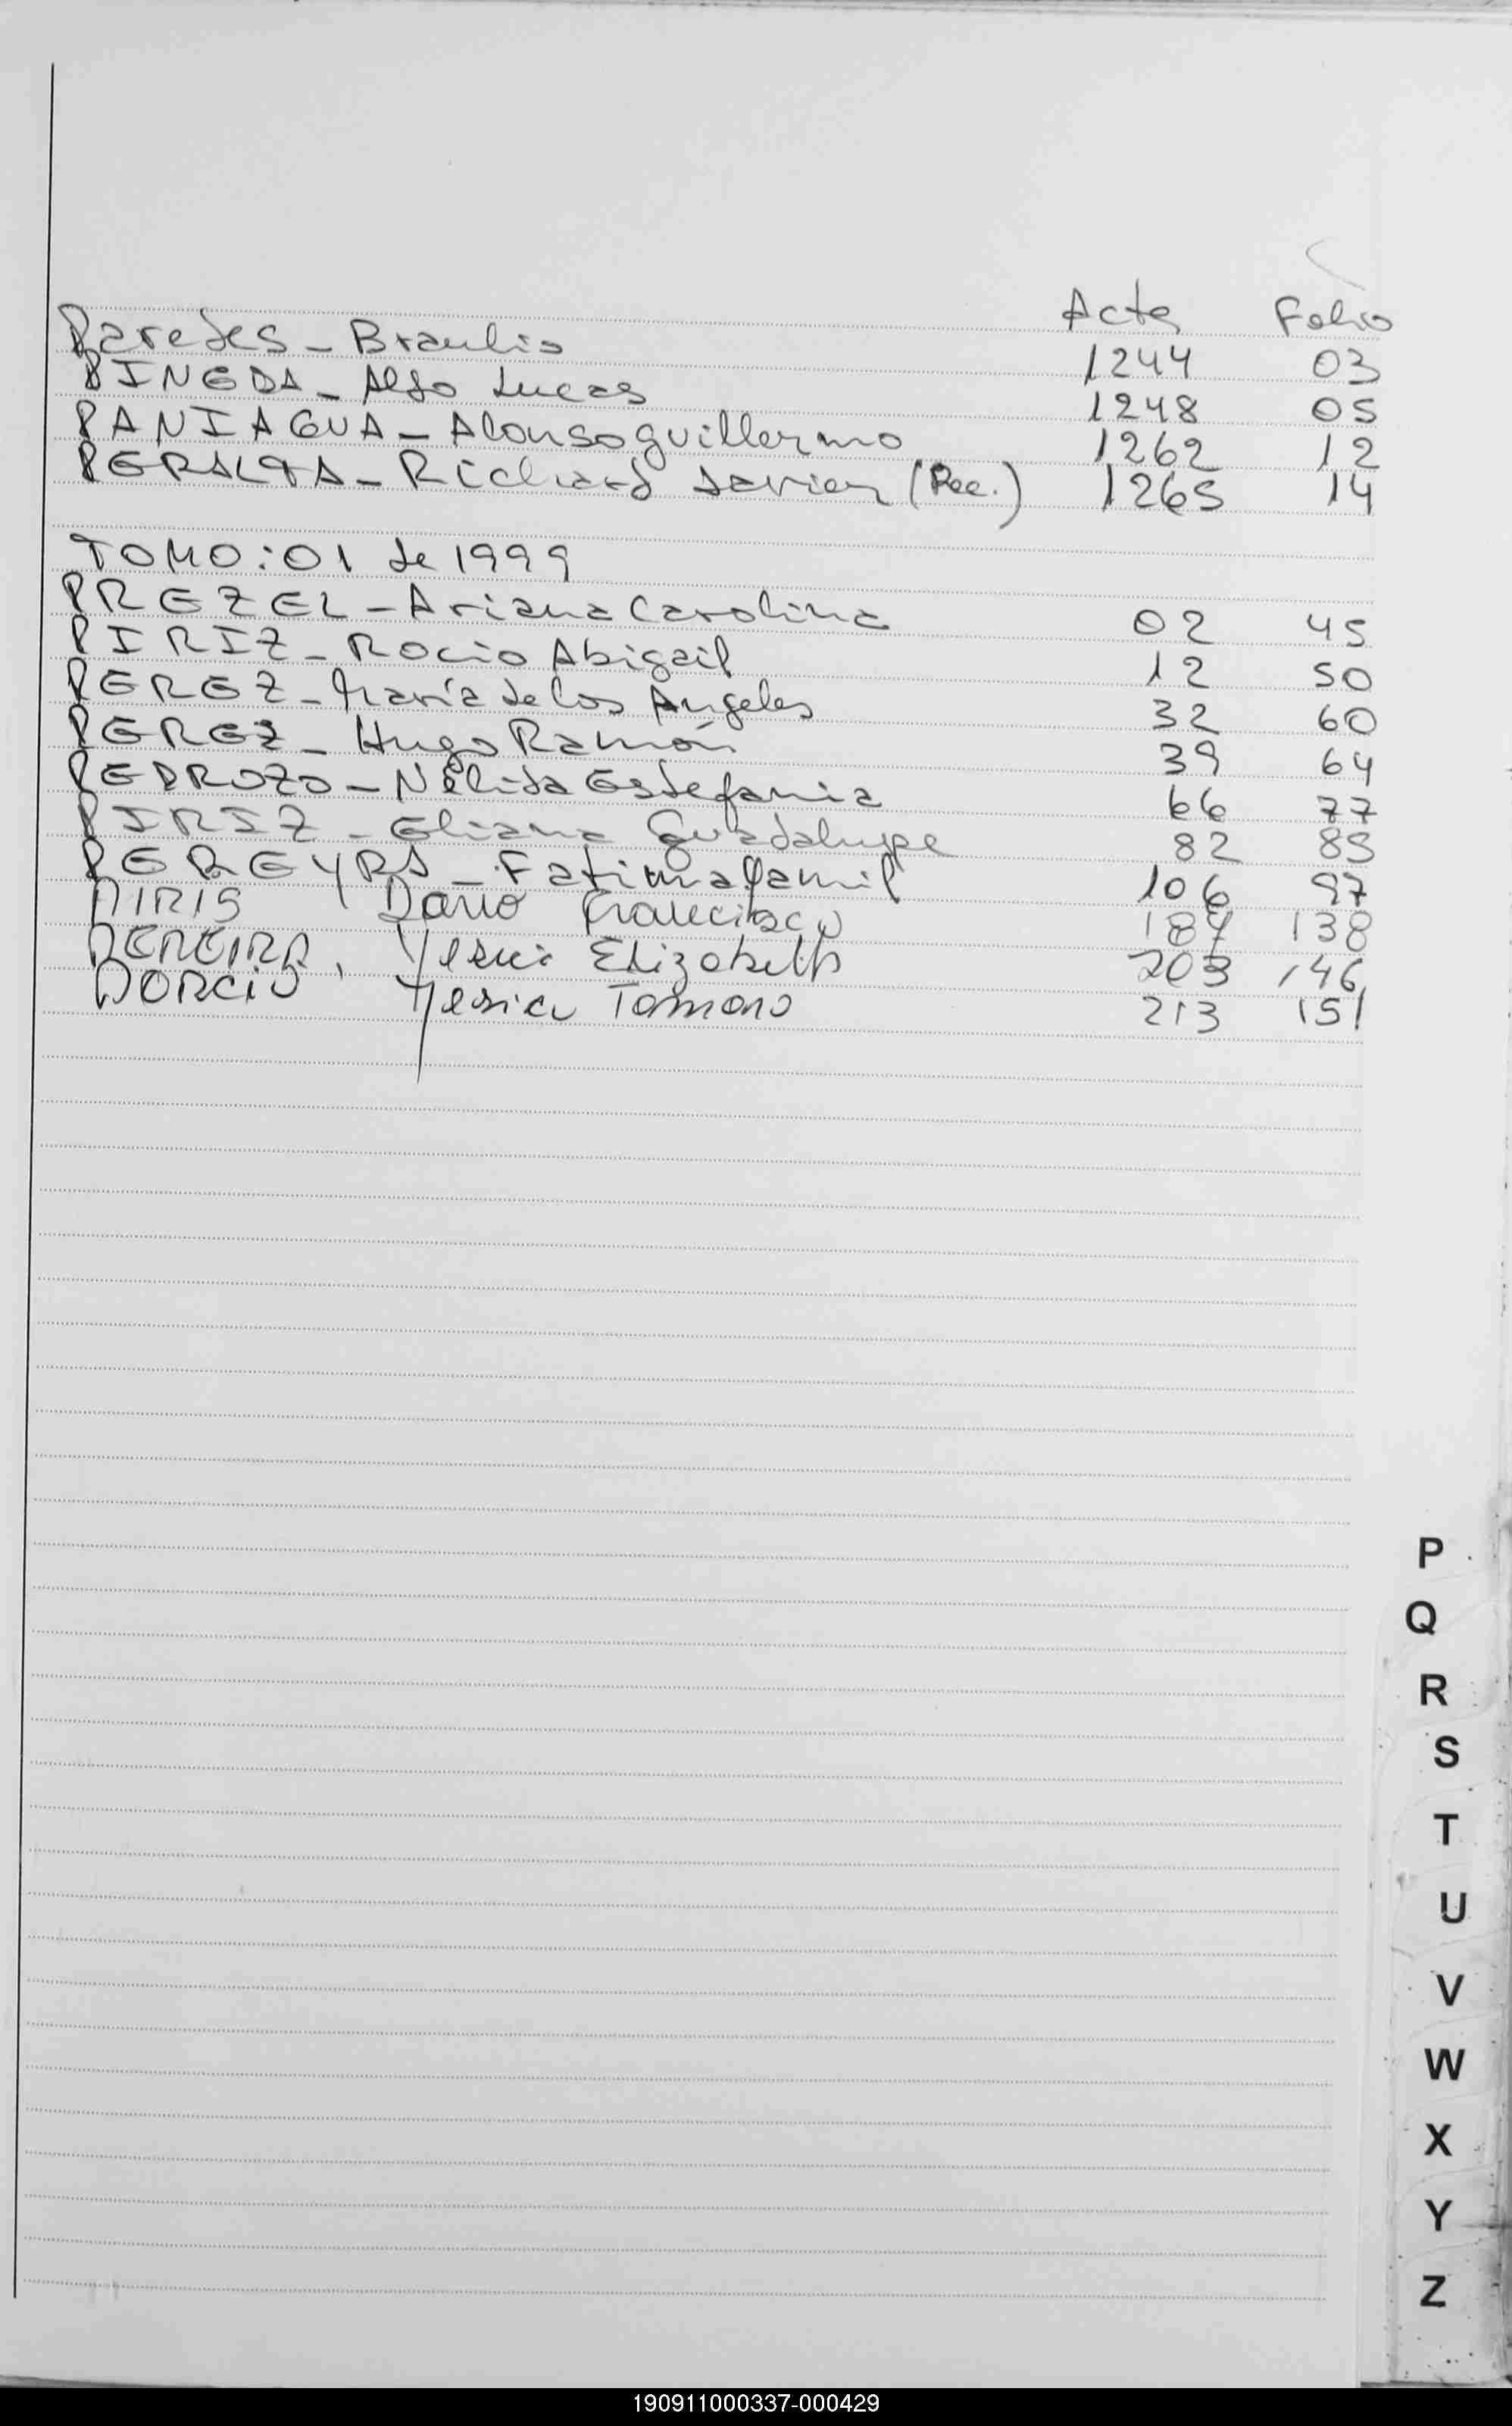 Acta Folio
Paredes - Braulio 1244 03
PINEDA - Aldo Lucas 1248 05
PANIAGUA - Alonso guillermo 1262 12
PERALTA - Richard Javier (Rec.) 1265 14
TOMO: 01 de 1999
PREZEL - Ariana Carolina 02 45
PIRIZ - Rocio Abigail 12 50
PEREZ - María de los Angeles 32 60
PEREZ - Hugo Ramón 39 64
PEDROZO - Nélida Estefania 66 77
PIRIZ - Eliana Guadalupe 82 85
PEREYRA - Fatima Yamil 106 97
PIRIS Dario Francisco 187 138
PEREIRA, Yesica Elizabeth 203 146
Yesica Tamara 213 151
P
Q
R
S
T
U
V
W
X
Y
Z
190911000337-000429